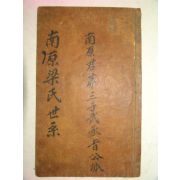 南原梁氏世系
南原君第三子武承旨公派